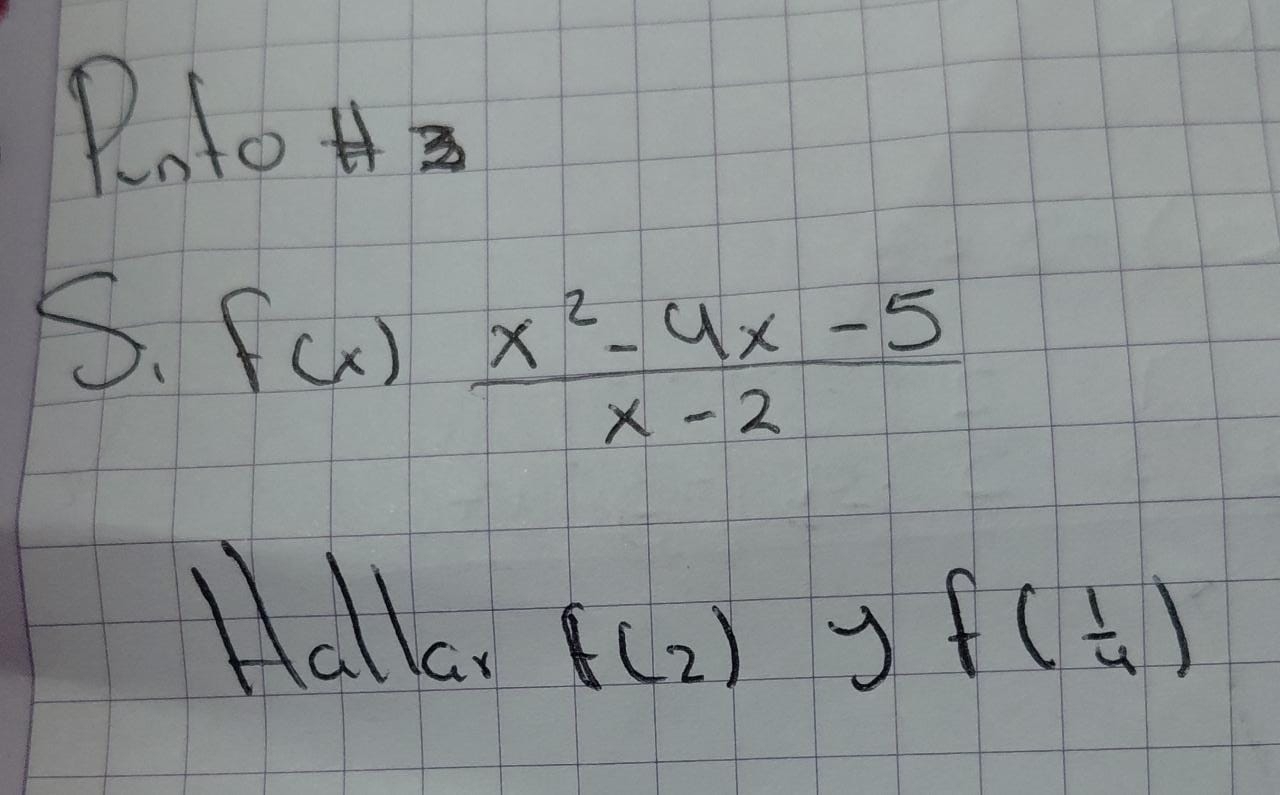 Punto # 3
Si f(x) x² - 4x - 5 / x - 2
Hallar f(2) y f(1/4)